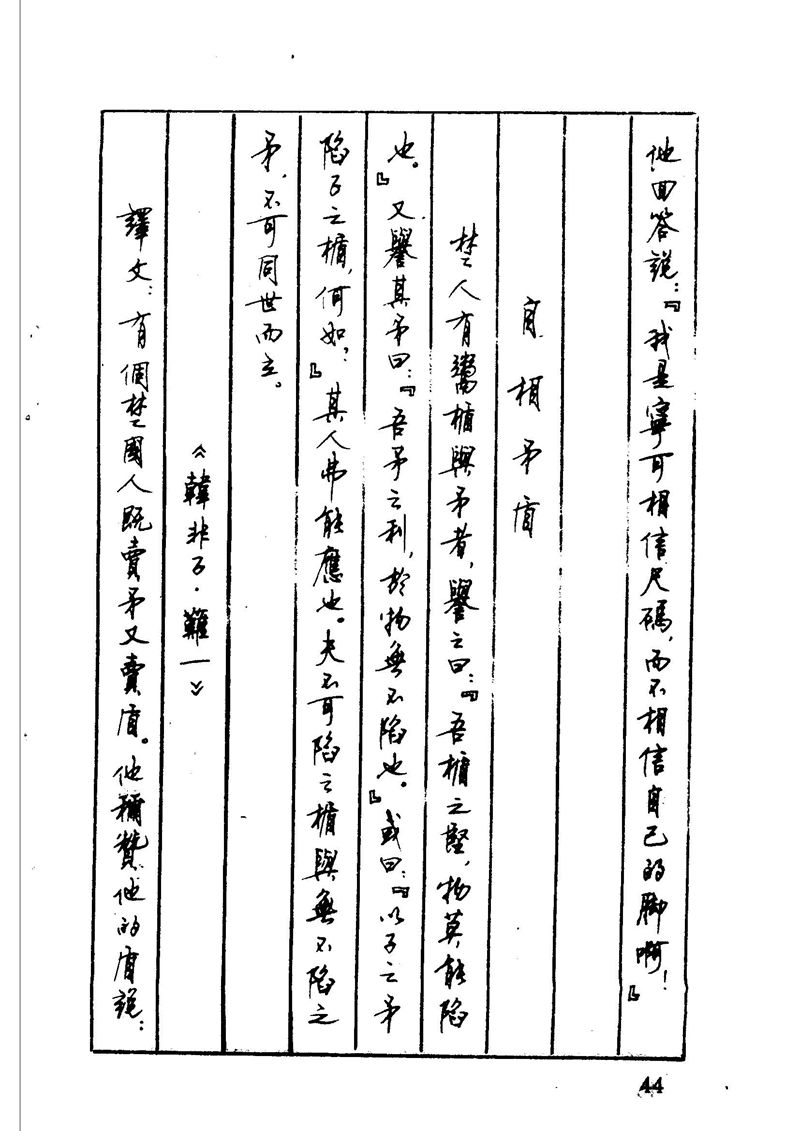 他回答説：『我是寧可相信尺碼，而不相信自己的脚啊！』
自相矛盾
楚人有鬻楯與矛者，譽之曰：『吾楯之堅，物莫能陷
也。』又譽其矛曰：『吾矛之利，於物無不陷也。』或曰：『以子之矛
陷子之楯，何如？』其人弗能應也。夫不可陷之楯與無不陷之
矛，不可同世而立。
《韓非子·難一》
譯文：有個楚國人既賣矛又賣盾。他稱贊他的盾説：
44